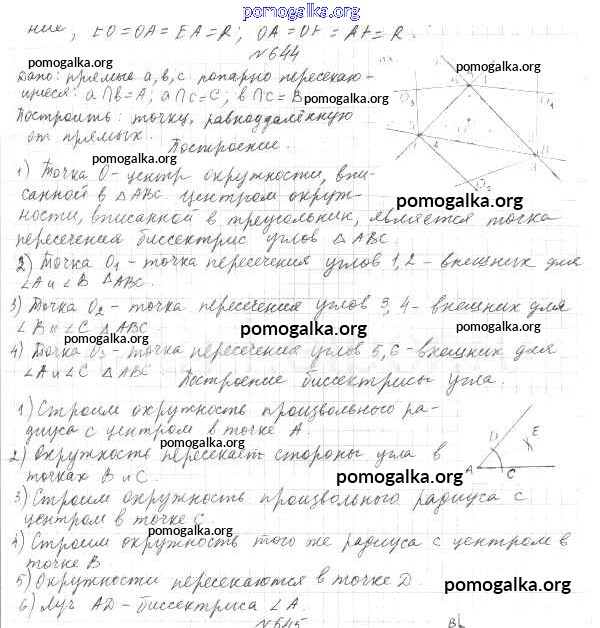 pomogalka.org
них, EO=OA=EA=R; OA=OF=AF=R.
№644
Дано: прямые a, b, c попарно пересекаю-
щиеся: a∩b=A; a∩c=C; b∩c=B
pomogalka.org
Построить: точку, равноудалённую
от прямых.
Построение.
pomogalka.org
pomogalka.org
1) Точка O-центр окружности, впи-
санной в △ABC. Центром окруж-
ности, вписанной в треугольник, является точка
пересечения биссектрис углов △ABC.
pomogalka.org
2) Точка O₁ - точка пересечения углов 1,2 - внешних для
∠A и ∠B △ABC.
pomogalka.org
3) Точка O₂ - точка пересечения углов 3,4 - внешних для
∠B и ∠C △ABC
pomogalka.org
pomogalka.org
4) Точка O₃ - точка пересечения углов 5,6 - внешних для
∠A и ∠C △ABC
Построение биссектрисы угла.
1) Строим окружность произвольного ра-
диуса с центром в точке A.
pomogalka.org
2) Окружность пересекает стороны угла в
точках B и C.
pomogalka.org
3) Строим окружность произвольного радиуса с
центром в точке C
pomogalka.org
4) Строим окружность того же радиуса с центром в
точке B
5) Окружности пересекаются в точке D.
pomogalka.org
6) Луч AD - биссектриса ∠A.
№645
O₁
O₂
B
A
D
E
C
B